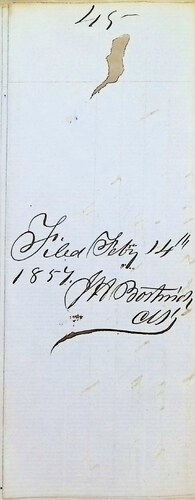 45
Filed Feby 14th
1857. J W Bostwick
Clk